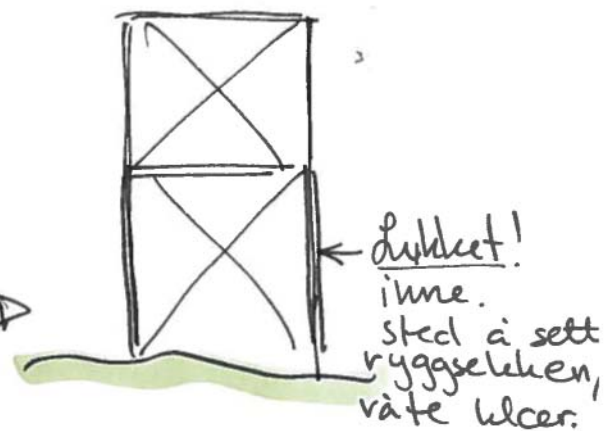 Lukket!
inne.
sted å sett
ryggsekken,
våte klær.